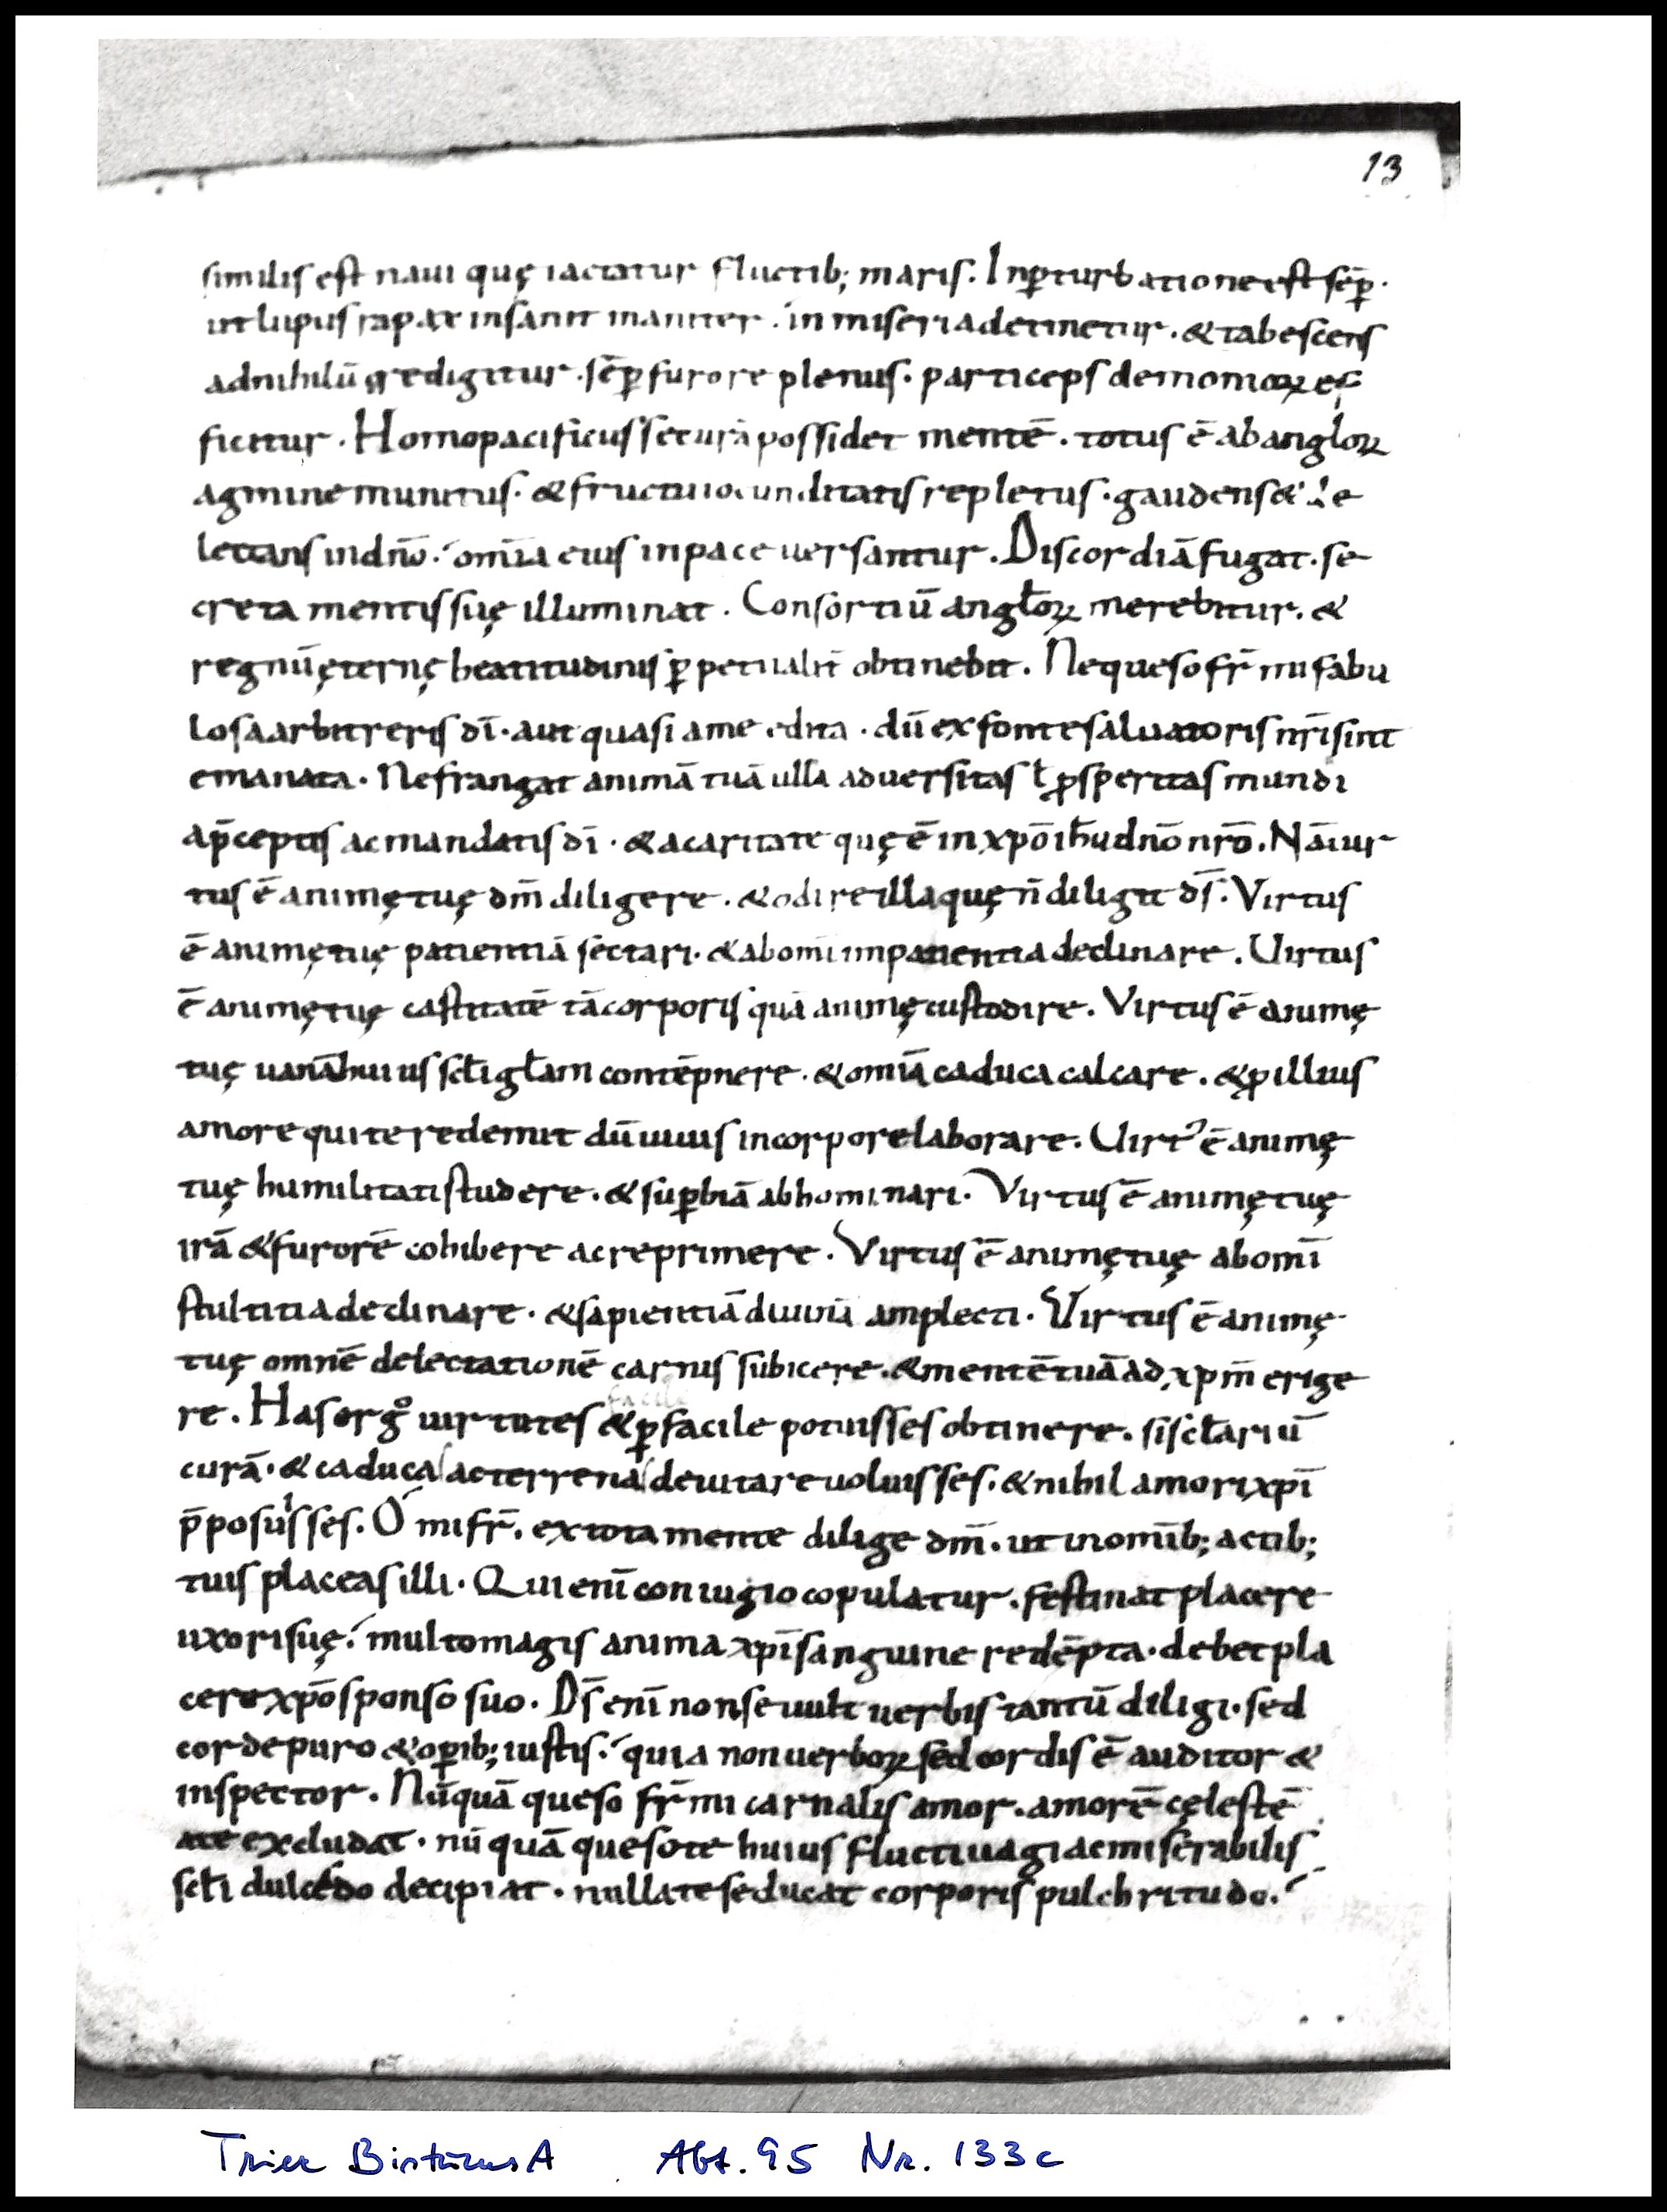 13
similis est naui quę iactatur fluctib; maris. Inp̱turbatione est sēp̱.
ut lupus rapax insanit maniter. in miseria detinetur. & tabescens
adnihilū redigitur. sēp̱ furore plenus. particeps demonioꝝ ef
ficitur. Homo pacificus securā possidet mentē. totus ē ab angloꝝ
agmine munitus. & fructu iocunditatis repletus. gaudens & de
lectans in dn̄o. om̄ia eius in pace uersantur. Discordiā fugat. se
creta mentis suę illuminat. Consortiū angl̄oꝝ merebitur. &
regnū ęternę beatitudinis p̱petualit̄ obtinebit. Ne queso fr̄ mi fabu
losa arbitreris dī. aut quasi a me edita. dū ex fonte saluatoris nr̄i sint
emanata. Ne frangat animā tuā ulla aduersitas ł ꝓsperitas mundi
a p̄ceptis ac mandatis dī. & a caritate quę ē in xp̄o ih̄u dn̄o nr̄o. Nā uir
tus ē animę tuę dm̄ diligere. & odire illa quę n̄ diligit ds̄. Virtus
ē animę tuę patientiā sectari. & ab omī inpatientia declinare. Uirtus
ē animę tuę castitatē tā corporis quā animę custodire. Virtus ē animę
tuę uanā huius scl̄i gl̄am contēpnere. & omīa caduca calcare. & p̱ illius
amore qui te redemit dū uiuis in corpore laborare. Uirt᾽ ē animę
tuę humilitati studere. & sup̱biā abhominari. Virtus ē animę tuę
irā & furorē cohibere ac reprimere. Virtus ē animę tuę ab omī
stultitia declinare. & sapientiā diuinā amplecti. Virtus ē animę
tuę omnē delectationē carnis subicere. & mentē tuā ad xp̄m erige
re. Has ergº uirtutes & p̱facile potuisses obtinere. si scl̄ariū
curā. & caduca ac terrena deuitare uoluisses. & nihil amori xp̄i
p̄posuisses. O mi fr̄. ex tota mente dilige dm̄. ut in omīb; actib;
tuis placeas illi. Qui enī coniugio copulatur. festinat placere
uxori suę. multo magis anima xp̄i sanguine redēpta. debet pla
cere xp̄o sponso suo. Ds̄ enī non se uult uerbis tantū diligi. sed
corde puro & op̱ib; iustis. quia non uerboꝝ sed cordis ē auditor &
inspector. Nūquā queso fr̄ mi carnalis amor. amorē cęlestē
a te excludat. nūquā queso te huius fluctiuagi ac miserabilis
scl̄i dulcedo decipiat. nulla te seducat corporis pulchritudo.
Trier Bistumsa Abt. 95 Nr. 133c